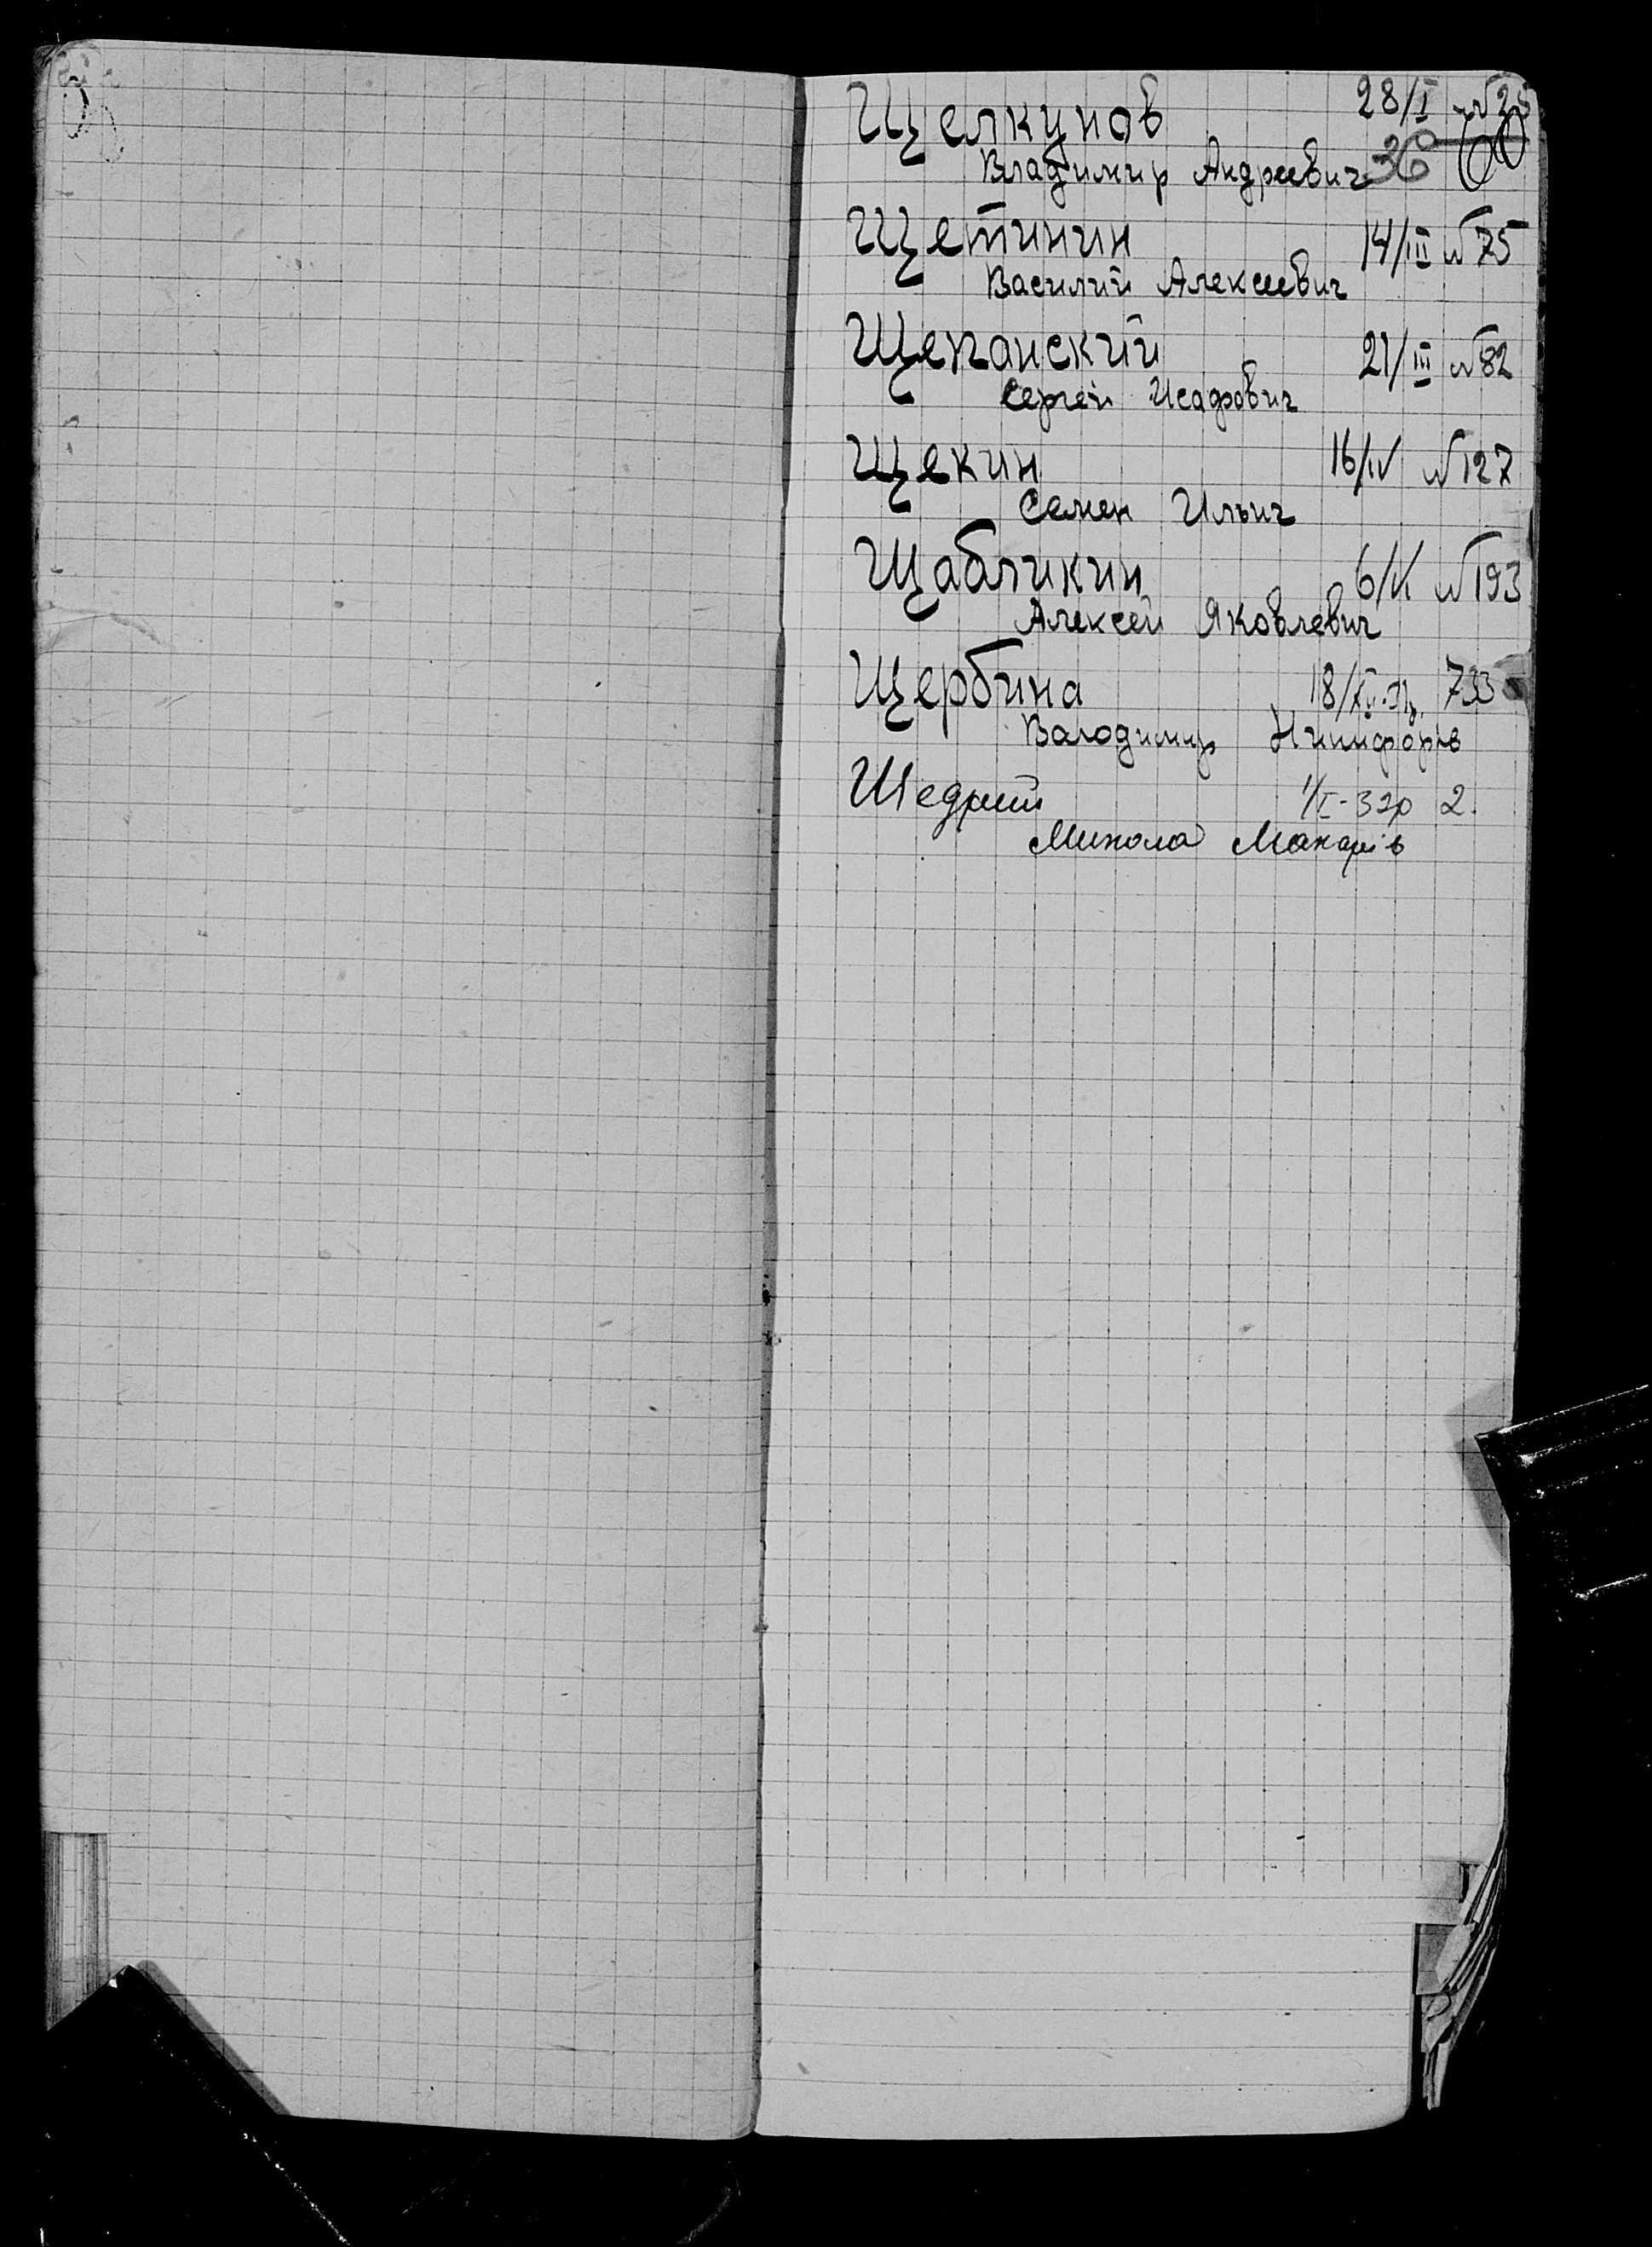 Щелкунов 28/I №
Владимир Андреевич 36
Щетинин 14/III №75
Василий Алексеевич
Щепанский 21/III №82
Сергей
Щекин 16/IV №127
Семен Ильич
Щабликин 6/VI №193
Алексей Яковлевич
Щербина 733
Володимир
Щедрий 1/I-32р 2.
Микола Макарів